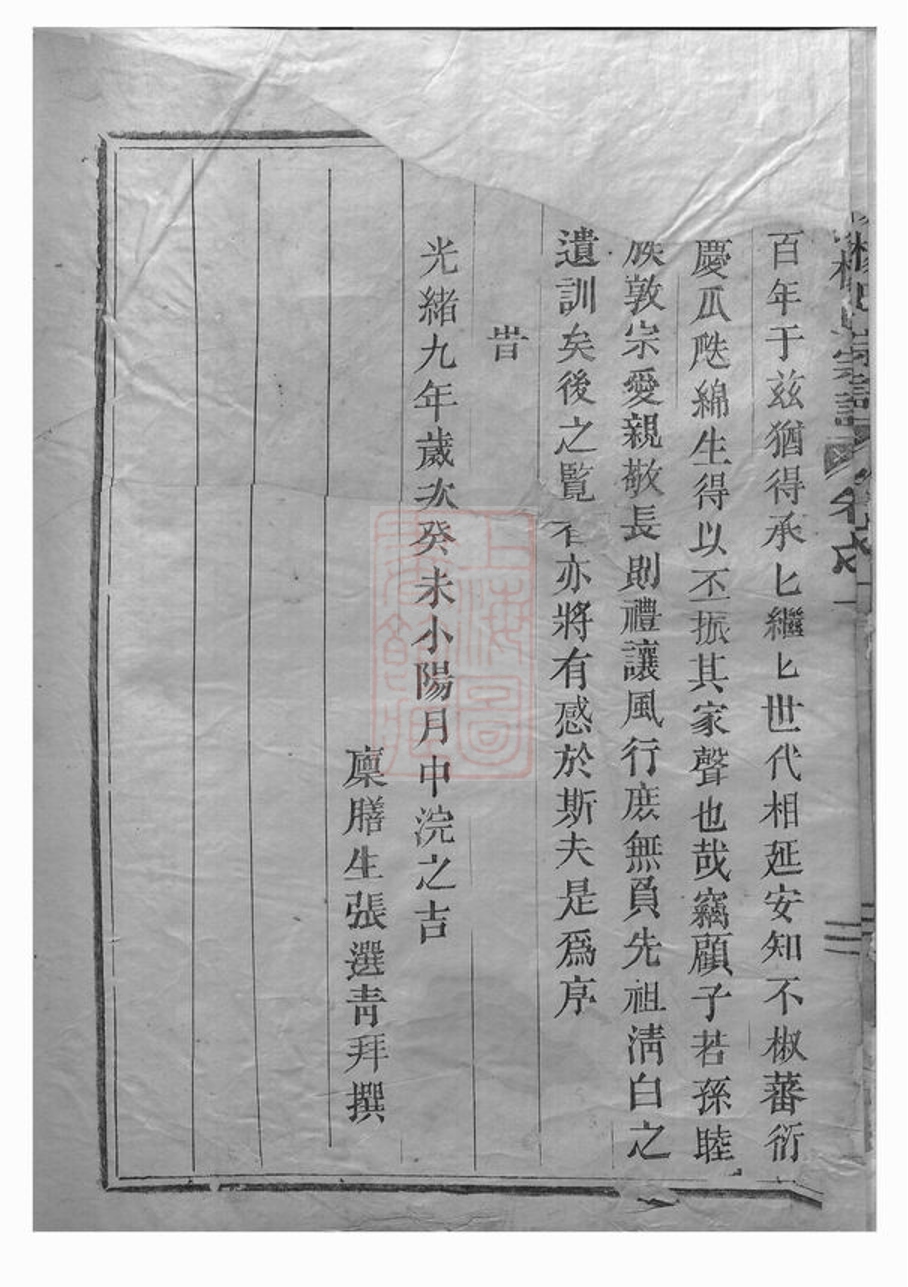 百年于玆猶得承匕繼匕世代相延安知不椒蕃衍
慶瓜瓞綿生得以丕振其家聲也哉竊顧子若孫睦
族敦宗愛親敬長則禮讓風行庶無負先祖淸白之
遺訓矣後之覽者亦將有感於斯夫是爲序
旹
光緖九年歲次癸未小陽月中浣之吉
廩膳生張選靑拜撰
上海圖書館藏